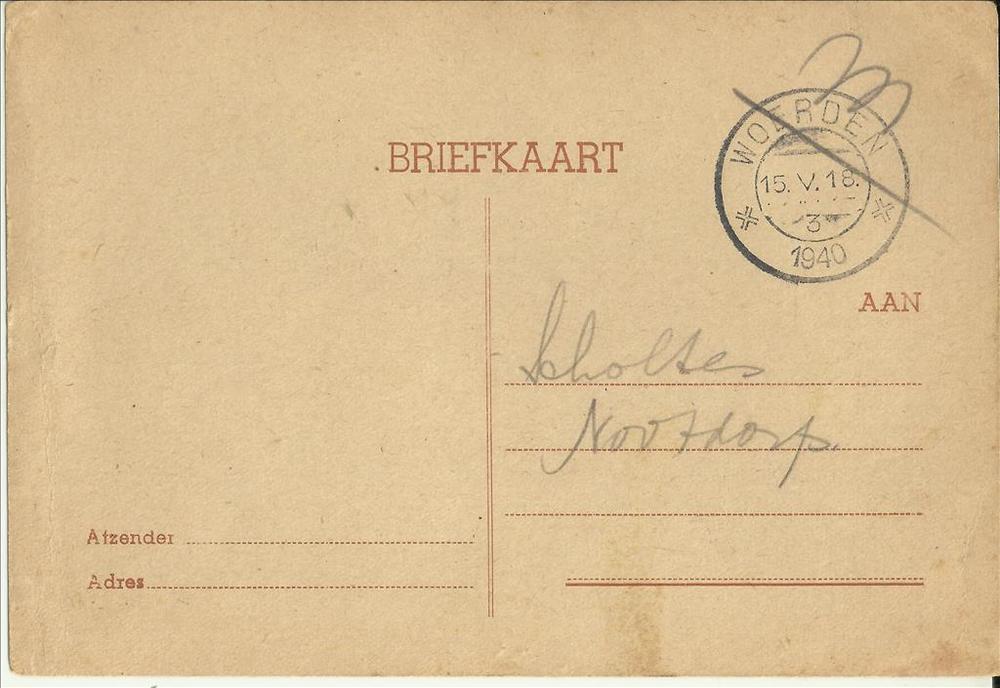 BRIEFKAART
WOERDEN
15. V. 18.
3
1940
AAN
Scholtes
Nootdorp.
Afzender
Adres